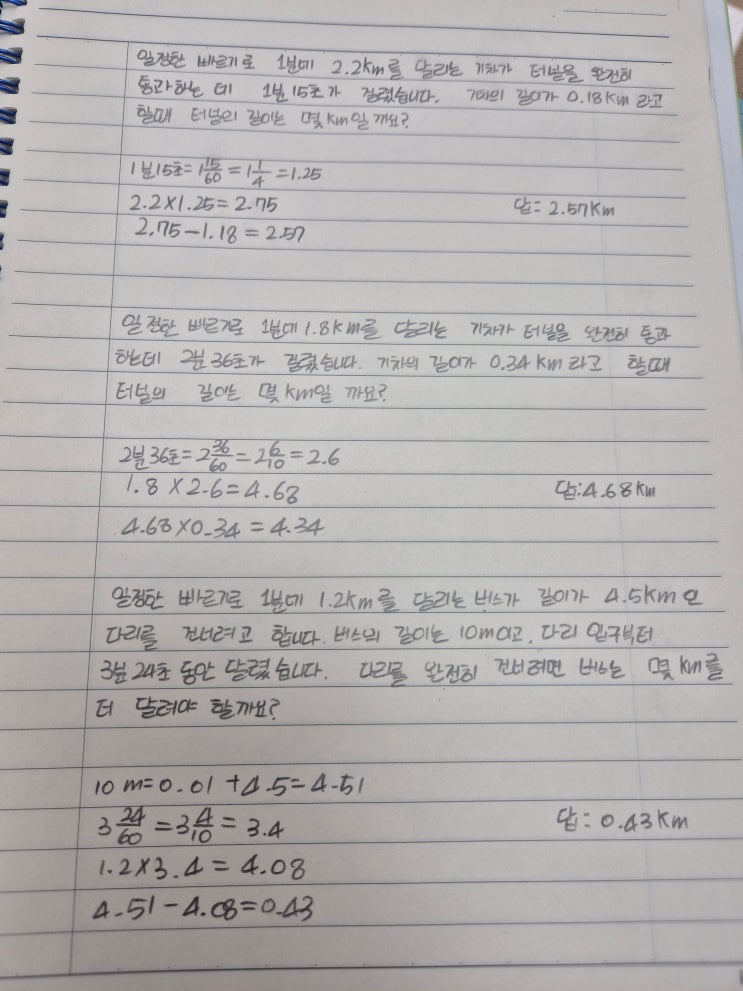 일정한 빠르기로 1분에 2.2km를 달리는 기차가 터널을 완전히
통과하는 데 1분 15초가 걸렸습니다. 기차의 길이가 0.18km 라고
할때 터널의 길이는 몇 km일 까요?
1분15초=1 15/60 = 1 1/4 =1.25
2.2×1.25=2.75 답: 2.57km
2.75-1.18=2.57
일정한 빠르기로 1분에 1.8km를 달리는 기차가 터널을 완전히 통과
하는데 2분 36초가 걸렸습니다. 기차의 길이가 0.34 km 라고 할때
터널의 길이는 몇 km일 까요?
2분 36초=2 36/60=2 6/10=2.6
1.8×2.6=4.68 답:4.68km
4.68×0.34=4.34
일정한 빠르기로 1분에 1.2km를 달리는 버스가 길이가 4.5km 인
다리를 건너려고 합니다. 버스의 길이는 10m이고, 다리 입구부터
3분 24초 동안 달렸습니다. 다리를 완전히 건너려면 버스는 몇 km를
더 달려야 할까요?
10 m=0.01 +4.5=4.51
3 24/60=3 4/10=3.4 답: 0.43km
1.2×3.4=4.08
4.51-4.08=0.43